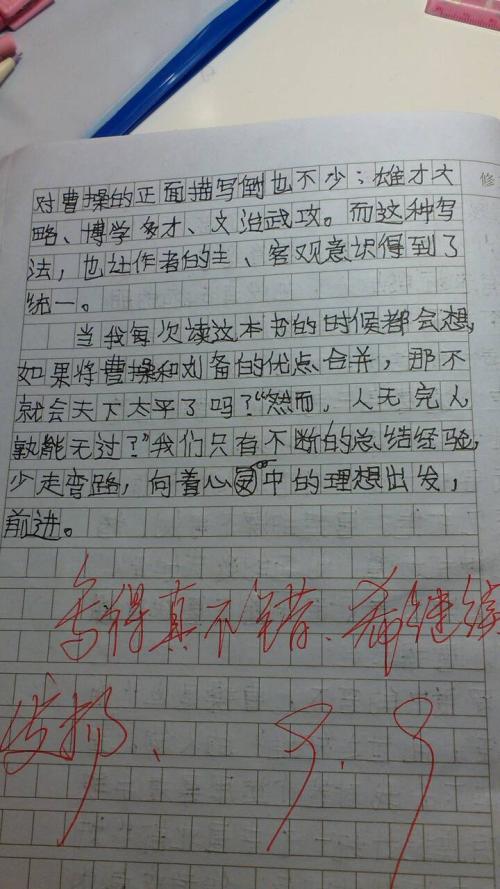 对曹操的正面描写倒也不少；雄才大
略、博学多才、文治武攻。而这种写
法，也让作者的主、客观意识得到了
统一。
当我每次读这本书的时候都会想，
如果将曹操和刘备的优点合并，那不
就会天下太平了吗？“然而，人无完人
孰能无过？”我们只有不断的总结经验，
少走弯路，向着心中的理想出发，
前进。
写得真不错、希继续
发扬、 9.9
修